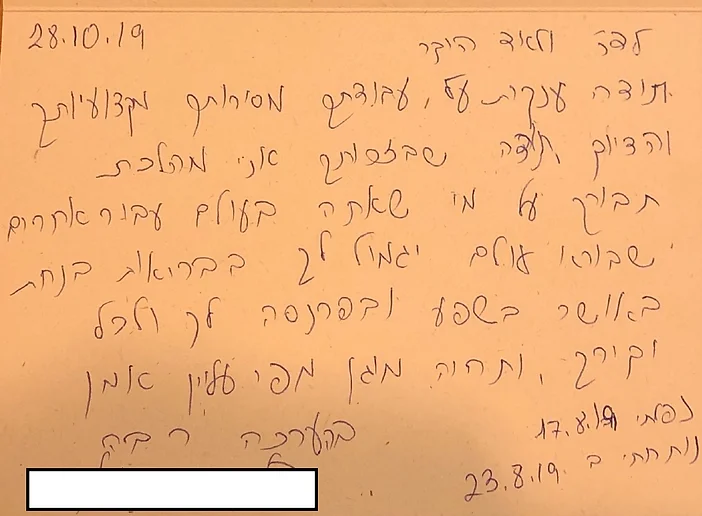 28.10.19
לדר וליאיד היקר
תודה ענקית על, עבודתך מסירותך מקצועיותך
והדיוק, תודה שבזכותך אני מהלכת
תבורך על מי שאתה בעולם עבור אחרים
שבורא עולם יגמול לך בבריאות בנחת
באושר בשפע ובפרנסה לך ולכל
יקירך, ותהיה מוגן מפי עליון אמן
בהערכה רבה
נפלתי 17.8.19
נותחתי ב 23.8.19